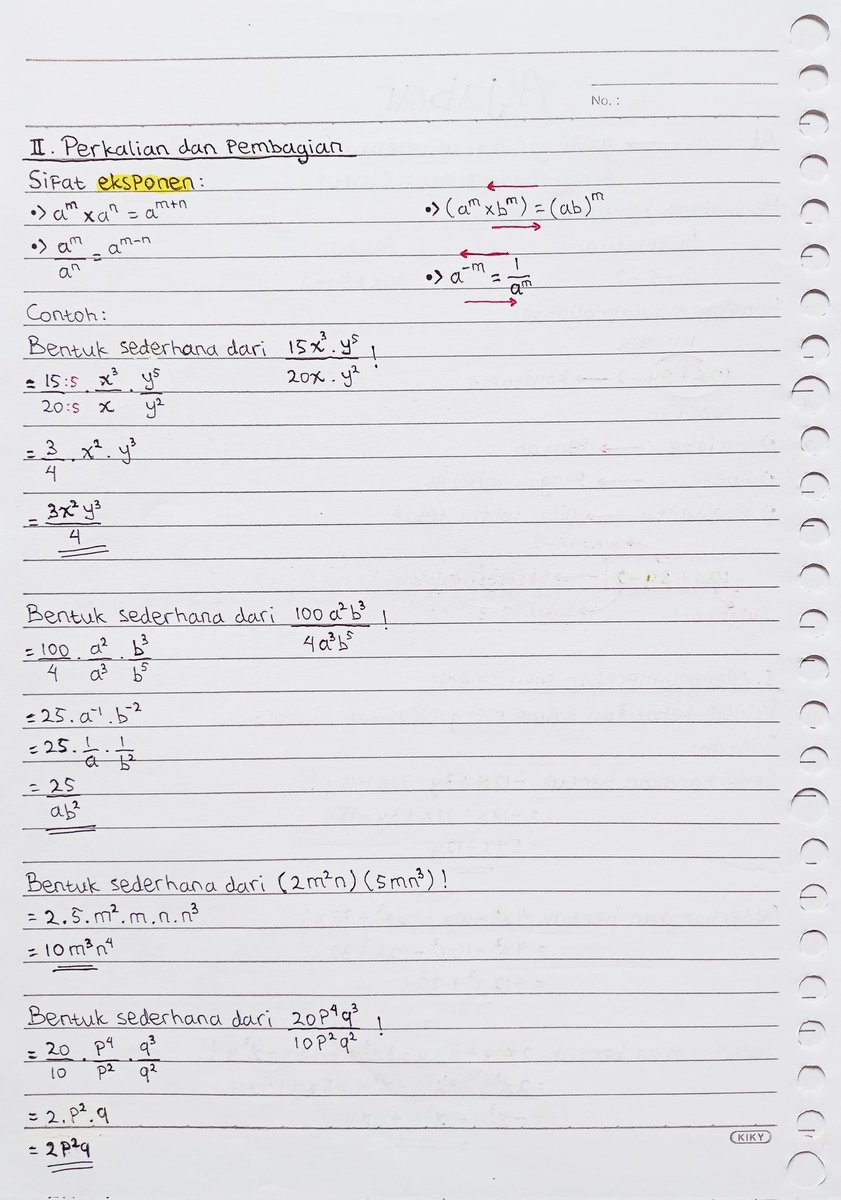 No. :
II. Perkalian dan Pembagian
Sifat eksponen:
•> aᵐ × aⁿ = aᵐ⁺ⁿ
•> aᵐ/aⁿ = aᵐ⁻ⁿ
•> (aᵐ × bᵐ) = (ab)ᵐ
•> a⁻ᵐ = 1/aᵐ
Contoh:
Bentuk sederhana dari 15x³ . y⁵/20x . y² !
= 15:5/20:5 . x³/x . y⁵/y²
= 3/4 . x² . y³
= 3x²y³/4
Bentuk sederhana dari 100a²b³/4a³b⁵ !
= 100/4 . a²/a³ . b³/b⁵
= 25 . a⁻¹ . b⁻²
= 25 . 1/a . 1/b²
= 25/ab²
Bentuk sederhana dari (2m²n) (5mn³) !
= 2 . 5 . m² . m . n . n³
= 10m³n⁴
Bentuk sederhana dari 20p⁴q³/10p²q² !
= 20/10 . p⁴/p² . q³/q²
= 2 . p² . q
= 2p²q
KIKY